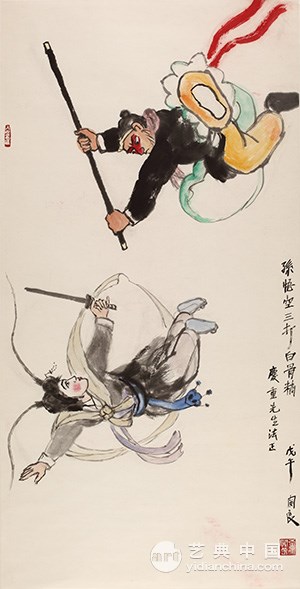 孫悟空三打白骨精
慶重先生法正
戊午 関良
艺典中国
yidianchina.com